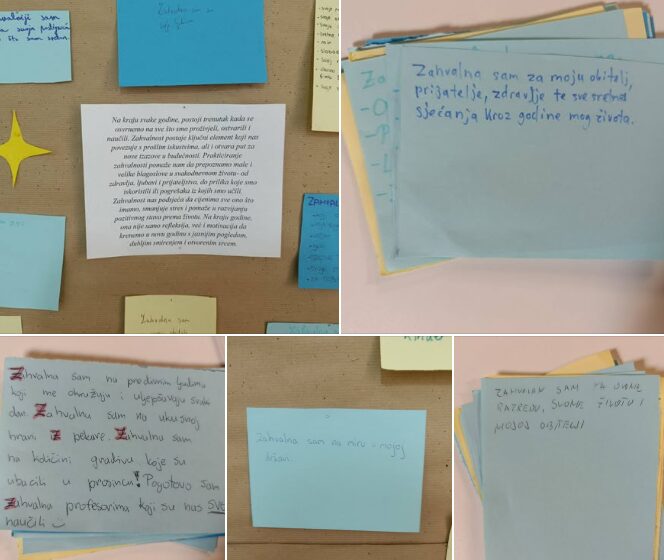 sam
što sam
Zahvalna sam za
Na kraju svake godine, postoji trenutak kada se
osvrnemo na sve što smo proživjeli, ostvarili i
naučili. Zahvalnost postaje ključni element koji nas
povezuje s prošlim iskustvima, ali i otvara put za
nove izazove u budućnosti. Prakticiranje
zahvalnosti pomaže nam da prepoznamo male i
velike blagoslove u svakodnevnom životu- od
zdravlja, ljubavi i prijateljstva, do prilika koje smo
iskoristili ili pogrešaka iz kojih smo učili.
Zahvalnost nas podsjeća da cijenimo sve ono što
imamo, smanjuje stres i pomaže u razvijanju
pozitivnog stava prema životu. Na kraju godine,
ona nije samo refleksija, već i motivacija da
krenemo u novu godinu s jasnijim pogledom,
dubljim smirenjem i otvorenim srcem.
Zahvalna sam
Zahvalna sam za moju obitelj,
prijatelje, zdravlje te sve sretna
sjećanja kroz godine mog života.
Za
-O
-P
-L
Zahvalna sam na predivnim ljudima
koji me okružuju i uljepšavaju svaki
dan. Zahvalna sam na ukusnoj
hrani iz pekare. Zahvalna sam
na količini gradiva koje su
ubacili u prosincu! Pogotovo sam
Zahvalna profesorima koji su nas SVE
naučili
Zahvalna sam na miru u mojoj
državi.
ZAHVALAN SAM ZA OVAJ
RAZRED, SVOME ŽIVOTU I
MOJOJ OBITELJI